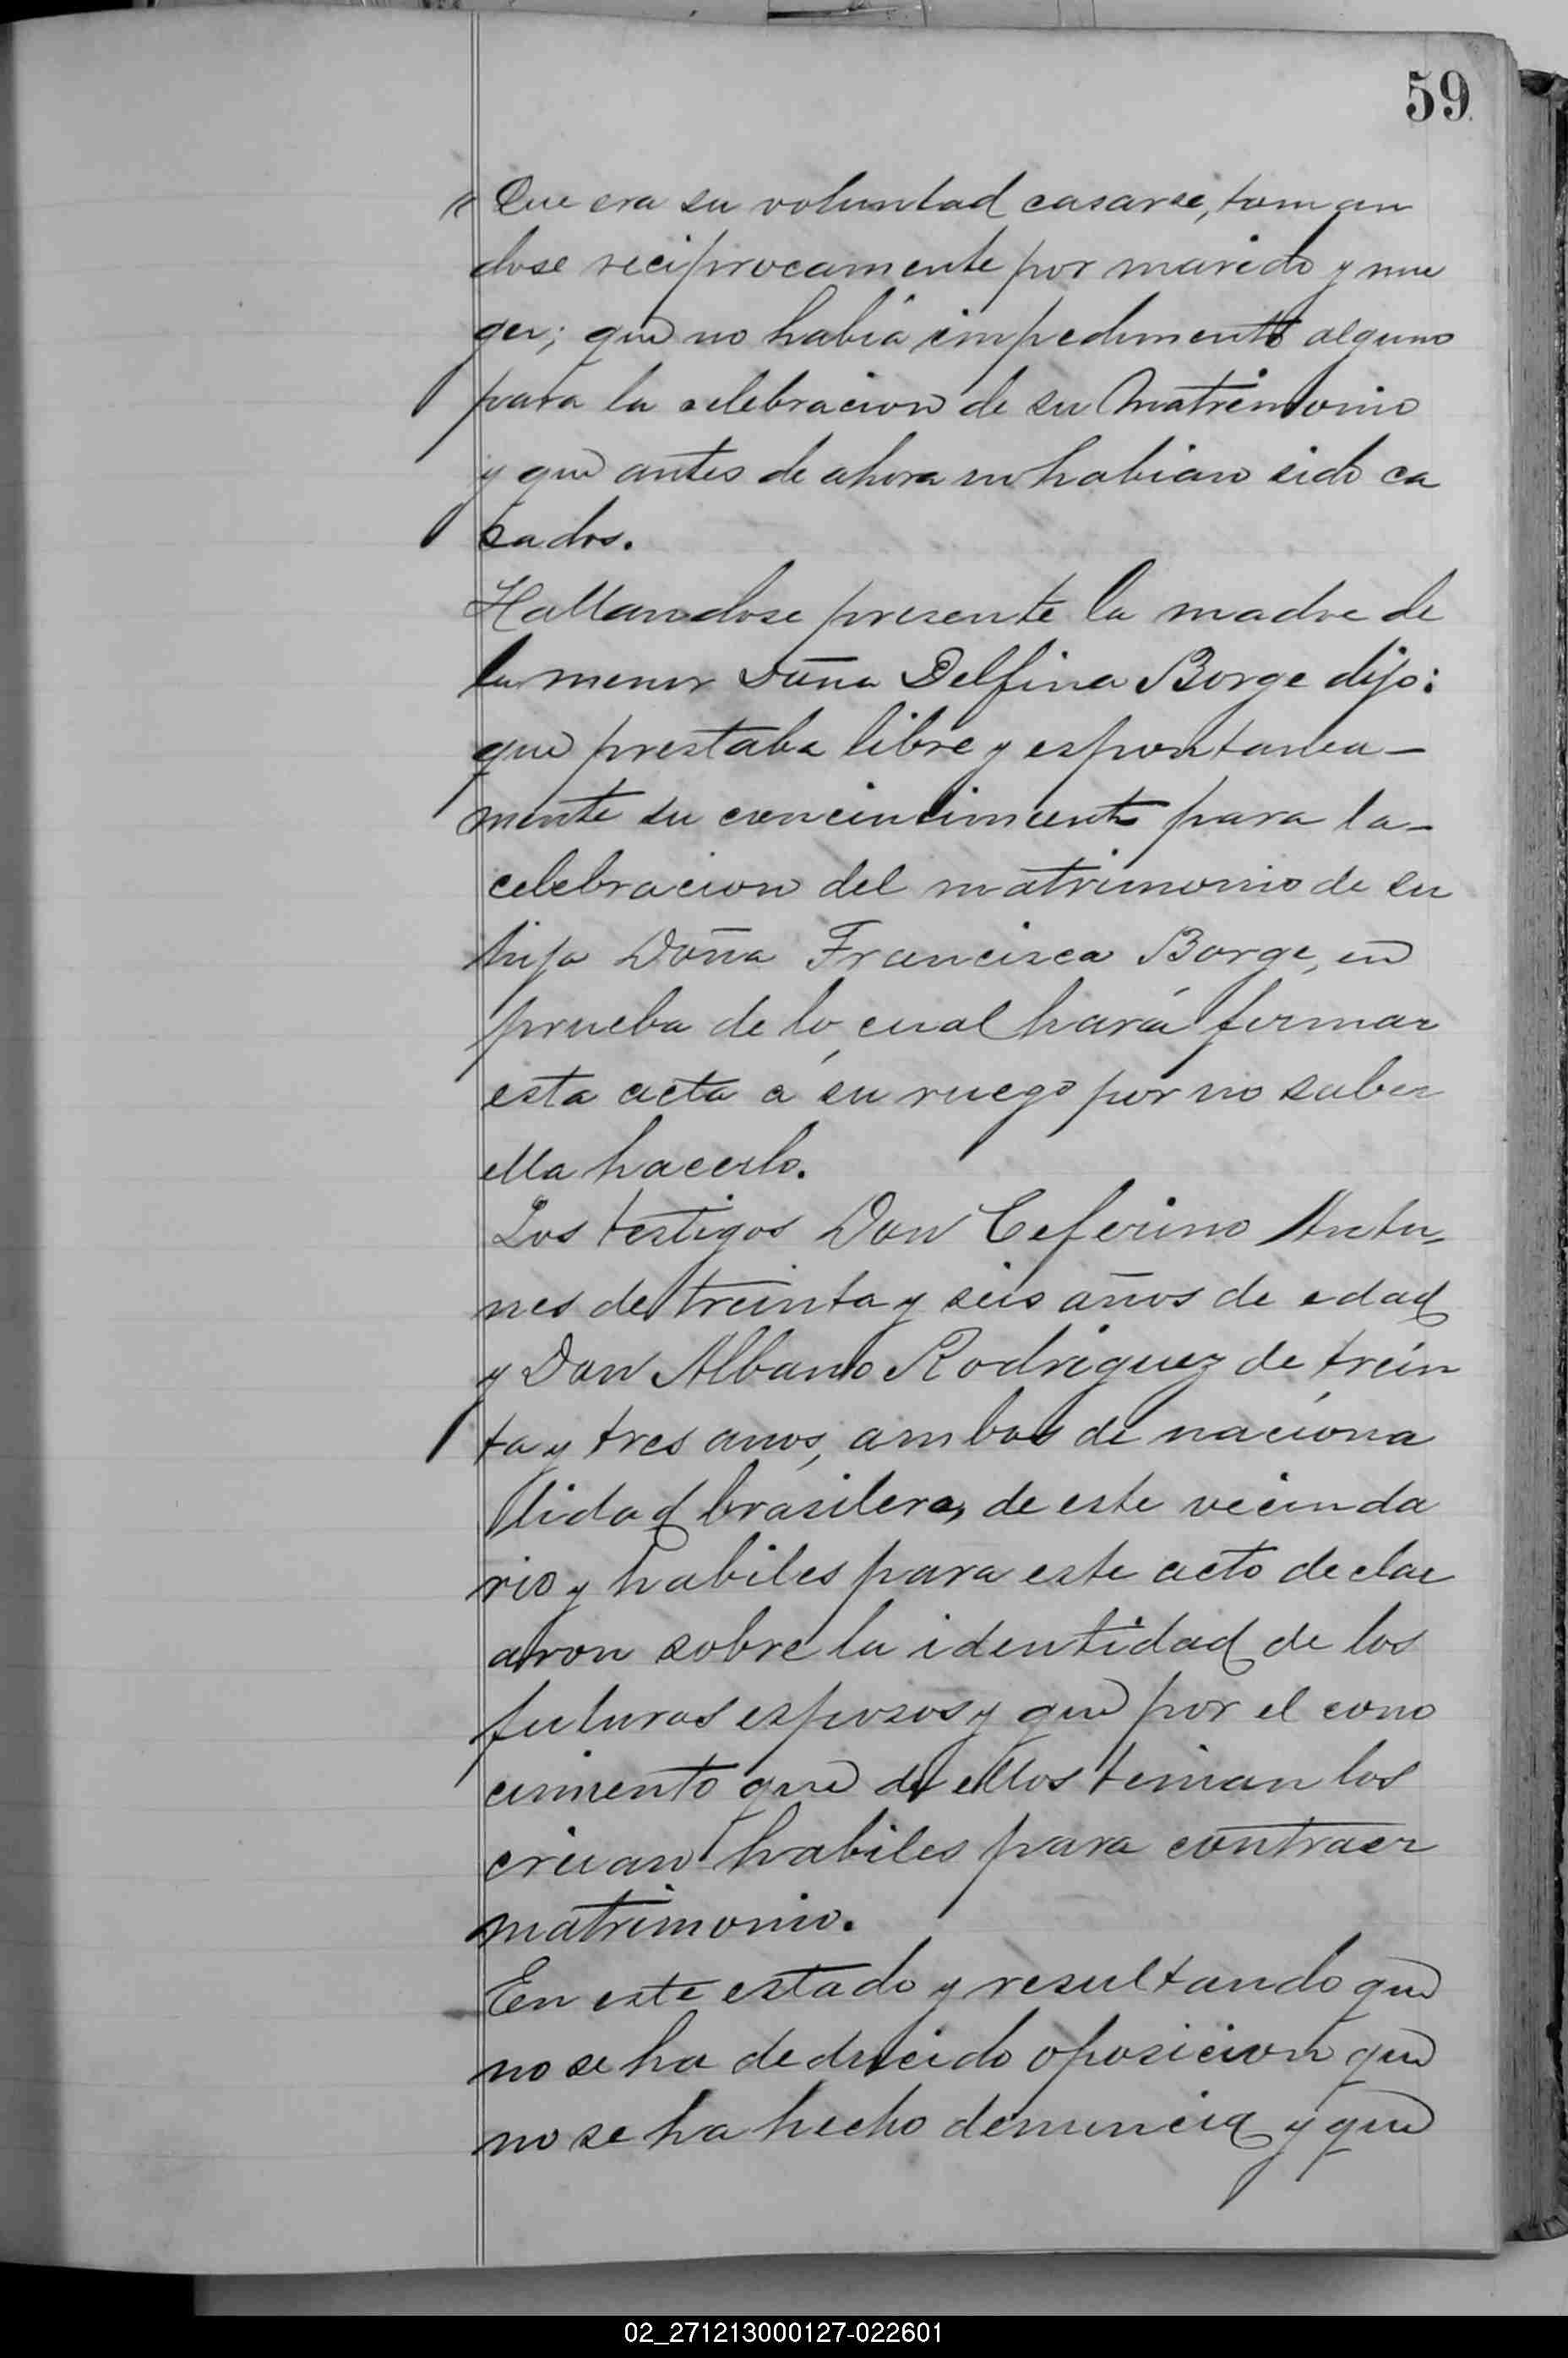 59
" Que era su voluntad casarse, toman
dose reciprocamente por marido y mu
ger; que no había impedimento alguno
para la celebracion de su Matrimonio
y que antes de ahora no habian sido ca
sados.
Hallandose presente la madre de
la menor Doña Delfina Borge dijo:
que prestaba libre y espontanea-
mente su concentimiento para la-
celebracion del matrimonio de su
hija Doña Francisca Borge, en
prueba de lo cual hará firmar
esta acta á su ruego por no saber
ella hacerlo.
Los testigos Don Ceferino Antu-
nes de treinta y seis años de edad
y Don Albano Rodriguez de trein
ta y tres anos, ambos de naciona
lidad brasilera, de este vecinda
rio y habiles para este acto declar
aron sobre la identidad de los
futuros esposos y que por el cono
cimiento que de ellos tenian los
creian habiles para contraer
matrimonio.
En este estado y resultando que
no se ha deducido oposicion que
no se ha hecho denuncia y que
02_271213000127-022601